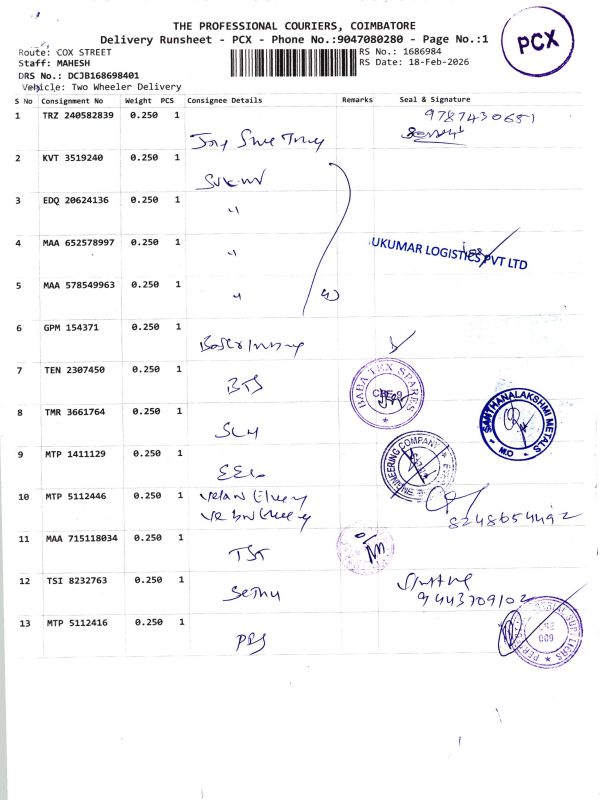 THE PROFESSIONAL COURIERS, COIMBATORE
Delivery Runsheet - PCX - Phone No.:9047080280 - Page No.:1
PCX
Route: COX STREET
RS No.: 1686984
Staff: MAHESH
RS Date: 18-Feb-2026
DRS No.: DCJB168698401
Vehicle: Two Wheeler Delivery
S No Consignment No Weight PCS Consignee Details Remarks Seal & Signature
1 TRZ 240582839 0.250 1 9787430651
2 KVT 3519240 0.250 1
3 EDQ 20624136 0.250 1 "
4 MAA 652578997 0.250 1 "
UKUMAR LOGISTICS PVT LTD
5 MAA 578549963 0.250 1 "
6 GPM 154371 0.250 1
7 TEN 2307450 0.250 1 BTS
BABA TEX SPARES
CBE-9
8 TMR 3661764 0.250 1 SLM
SANTHANALAKSHMI METALS
M.O
9 MTP 1411129 0.250 1
ENGINEERING COMPANY
10 MTP 5112446 0.250 1
8248654492
11 MAA 715118034 0.250 1 TST
12 TSI 8232763 0.250 1 Sethu
9443709102
13 MTP 5112416 0.250 1 PBS
009